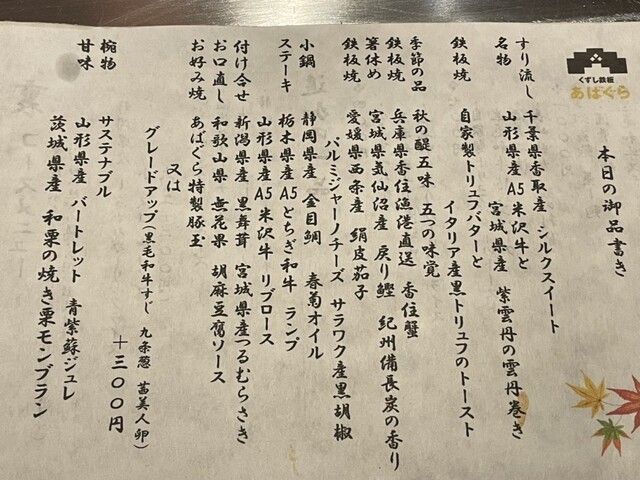 くずし鉄板
あばぐら
本日の御品書き
すり流し 千葉県香取産 シルクスイート
名物 山形県産 A5 米沢牛と
宮城県産 紫雲丹の雲丹巻き
鉄板焼 自家製トリュフバターと
イタリア産黒トリュフのトースト
季節の品 秋の醍五味 五つの味覚
鉄板焼 兵庫県香住漁港直送 香住蟹
箸休め 宮城県気仙沼産 戻り鰹 紀州備長炭の香り
鉄板焼 愛媛県西条産 絹皮茄子
パルミジャーノチーズ サラワク産黒胡椒
小鍋 静岡県産 金目鯛 春菊オイル
ステーキ 栃木県産 A5 とちぎ和牛 ランプ
山形県産 A5 米沢牛 リブロース
付け合せ 新潟県産 黒舞茸 宮城県産つるむらさき
お口直し 和歌山県 無花果 胡麻豆腐ソース
お好み焼 あばぐら特製豚玉
又は
グレードアップ(黒毛和牛すじ 九条葱 茜美人卵)
+三〇〇円
椀物 サステナブル
甘味 山形県産 バートレット 青紫蘇ジュレ
茨城県産 和栗の焼き栗モンブラン